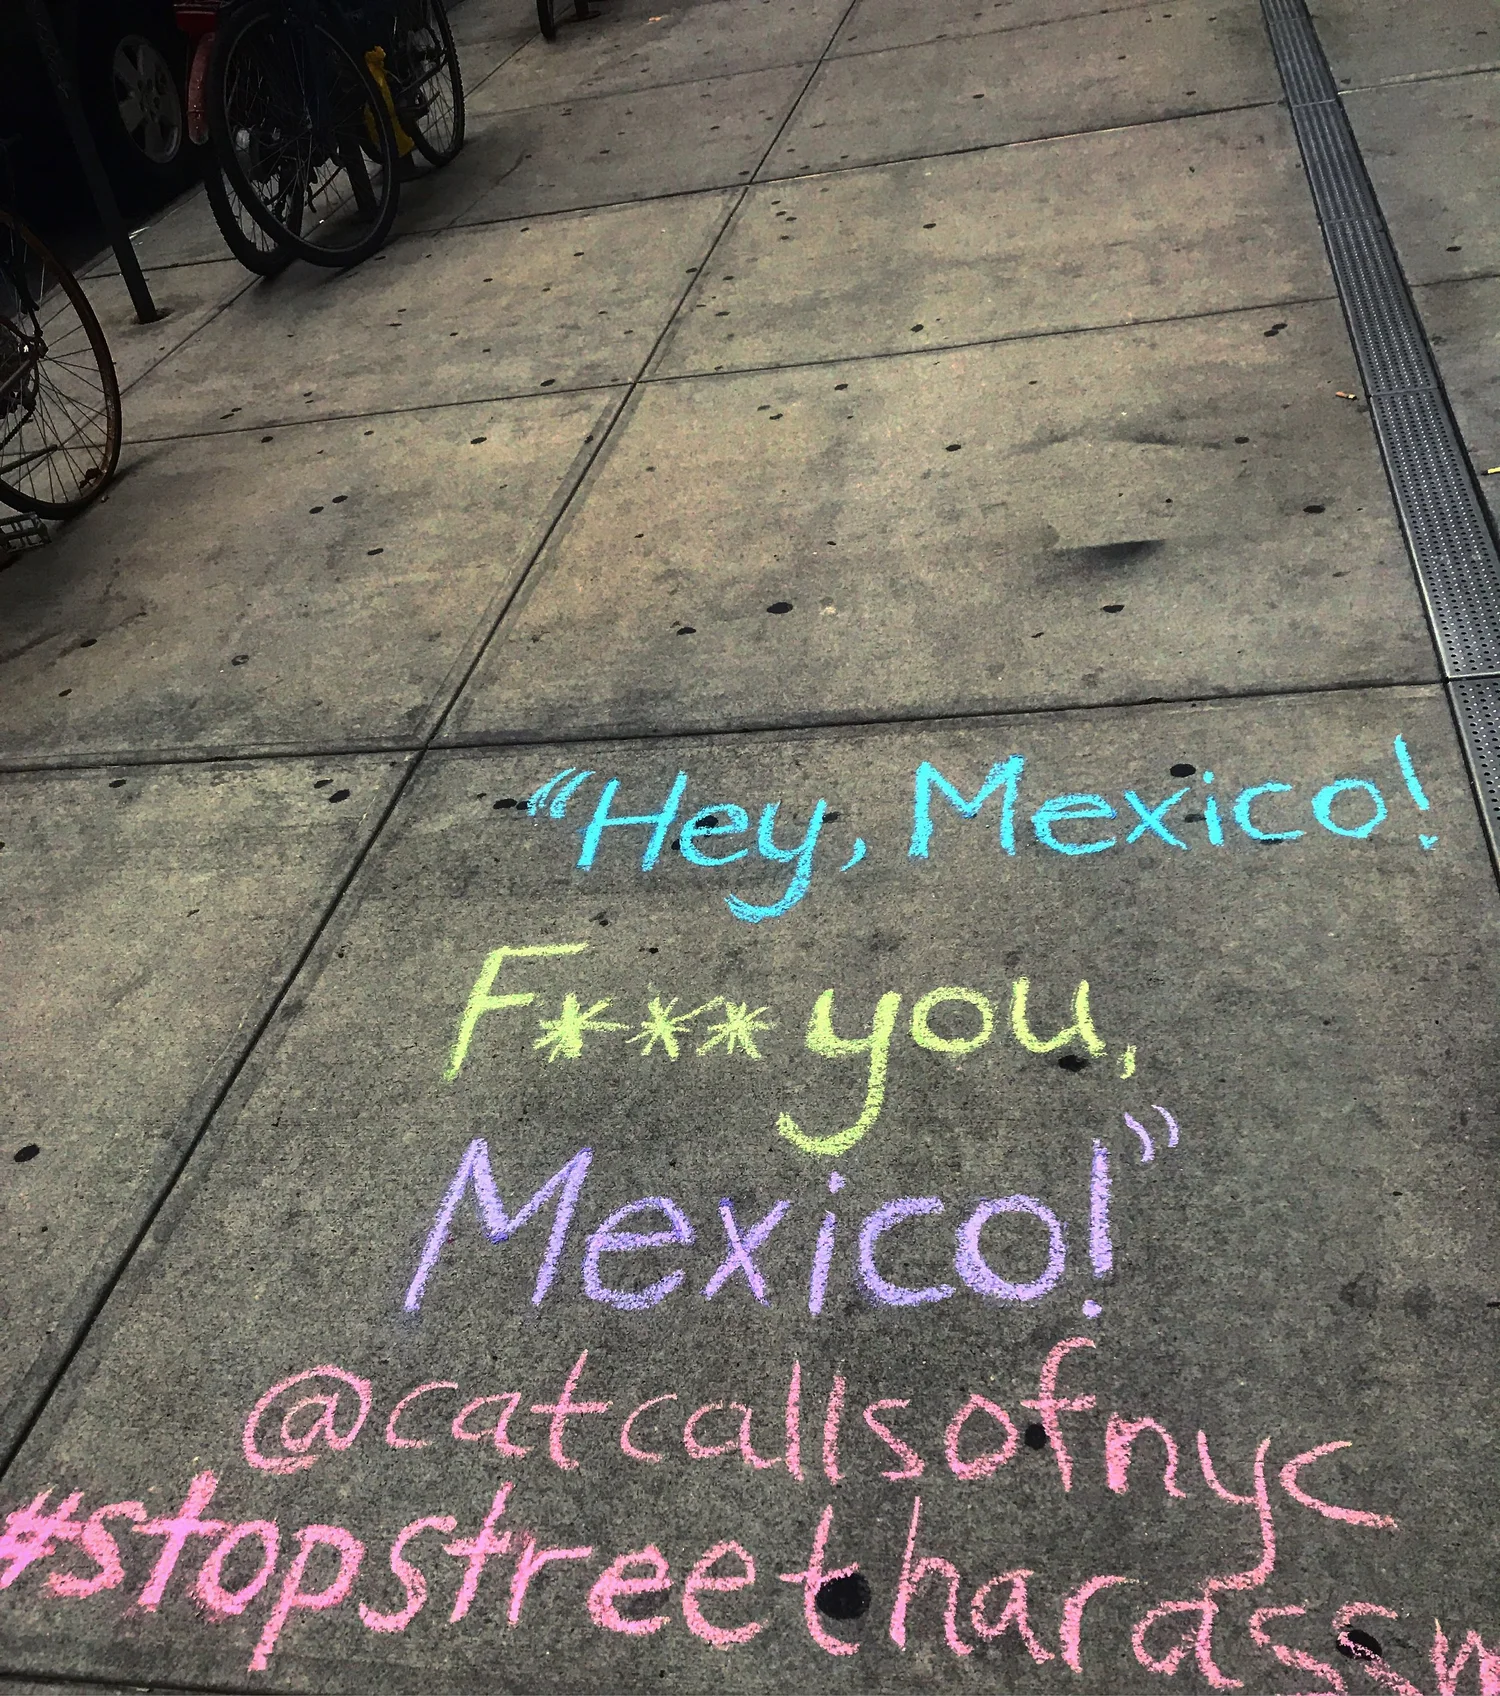 “Hey, Mexico!
F*** you,
Mexico!”
@catcallsofnyc
#stopstreetharassm